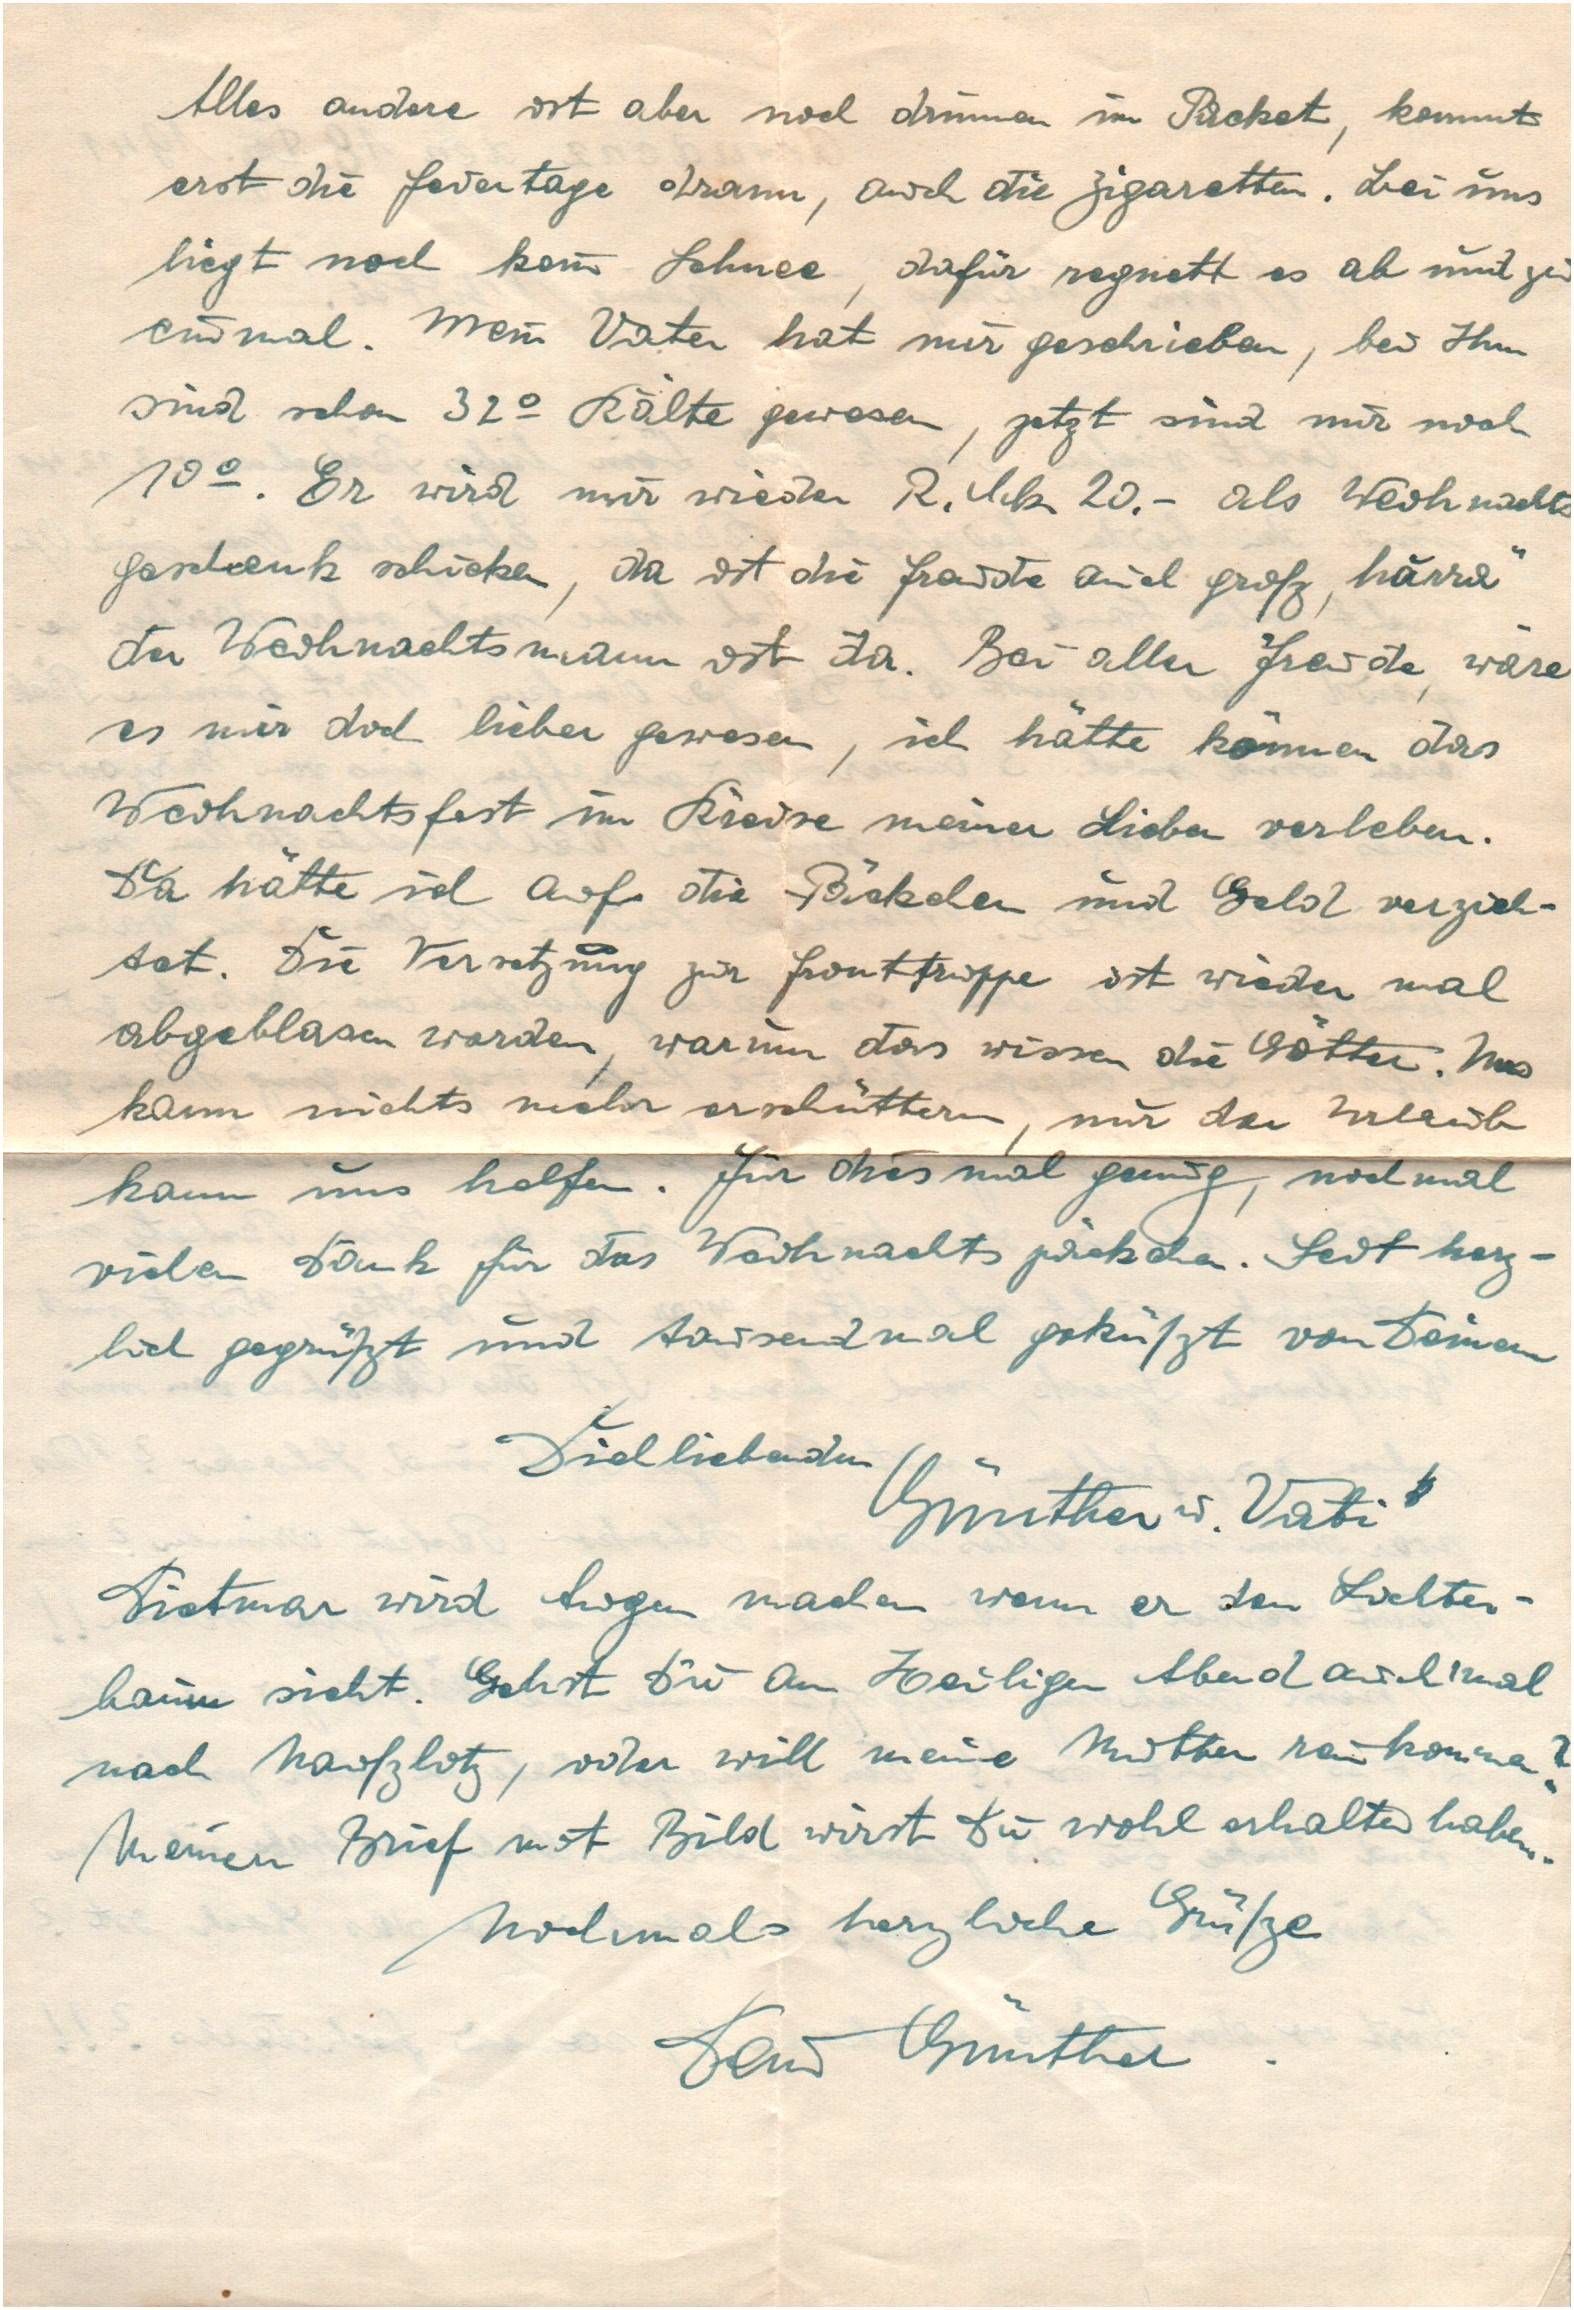 Alles andere ist aber noch drinnen im Päcket, kommt
erst die Feiertage drann, auch die Zigaretten. Bei uns
liegt noch kein Schnee, dafür regnett es ab und zu
einmal. Mein Vater hat mir geschrieben, bei Ihm
sind schon 32º Kälte gewesen, jetzt sind nur noch
10º. Er wird mir wieder R.Mk. 20.- als Weihnachts
geschenk schicken, da ist die Freude auch groß, hurra"
der Weihnachtsmann ist da. Bei aller Freude, wäre
es mir doch lieber gewesen, ich hätte können das
Weihnachtsfest im Kreise meiner Lieben verleben.
Da hätte ich auf die Päckchen und Geld verzich-
tet. Die Versetzung zur Fronttruppe ist wieder mal
abgeblasen worden, warum das wissen die Götter. Uns
kann nichts mehr erschüttern, nur der Urlaub
kann uns helfen. Für diesmal genug, nochmal
vielen Dank für das Weihnachtspäckchen. Seit herz-
lich gegrüßt und tausendmal geküßt von Deinem
Dich liebenden
Günther u. Vati"
Dietmar wird Augen machen wenn er den Lichter-
baum sieht. Gehst Du am Heiligen Abend auch mal
nach, oder will meine Mutter reinkommen?
Meinen Brief mit Bild wirst Du wohl erhalten haben.
Nochmals herzliche Grüße
Dein Günther.